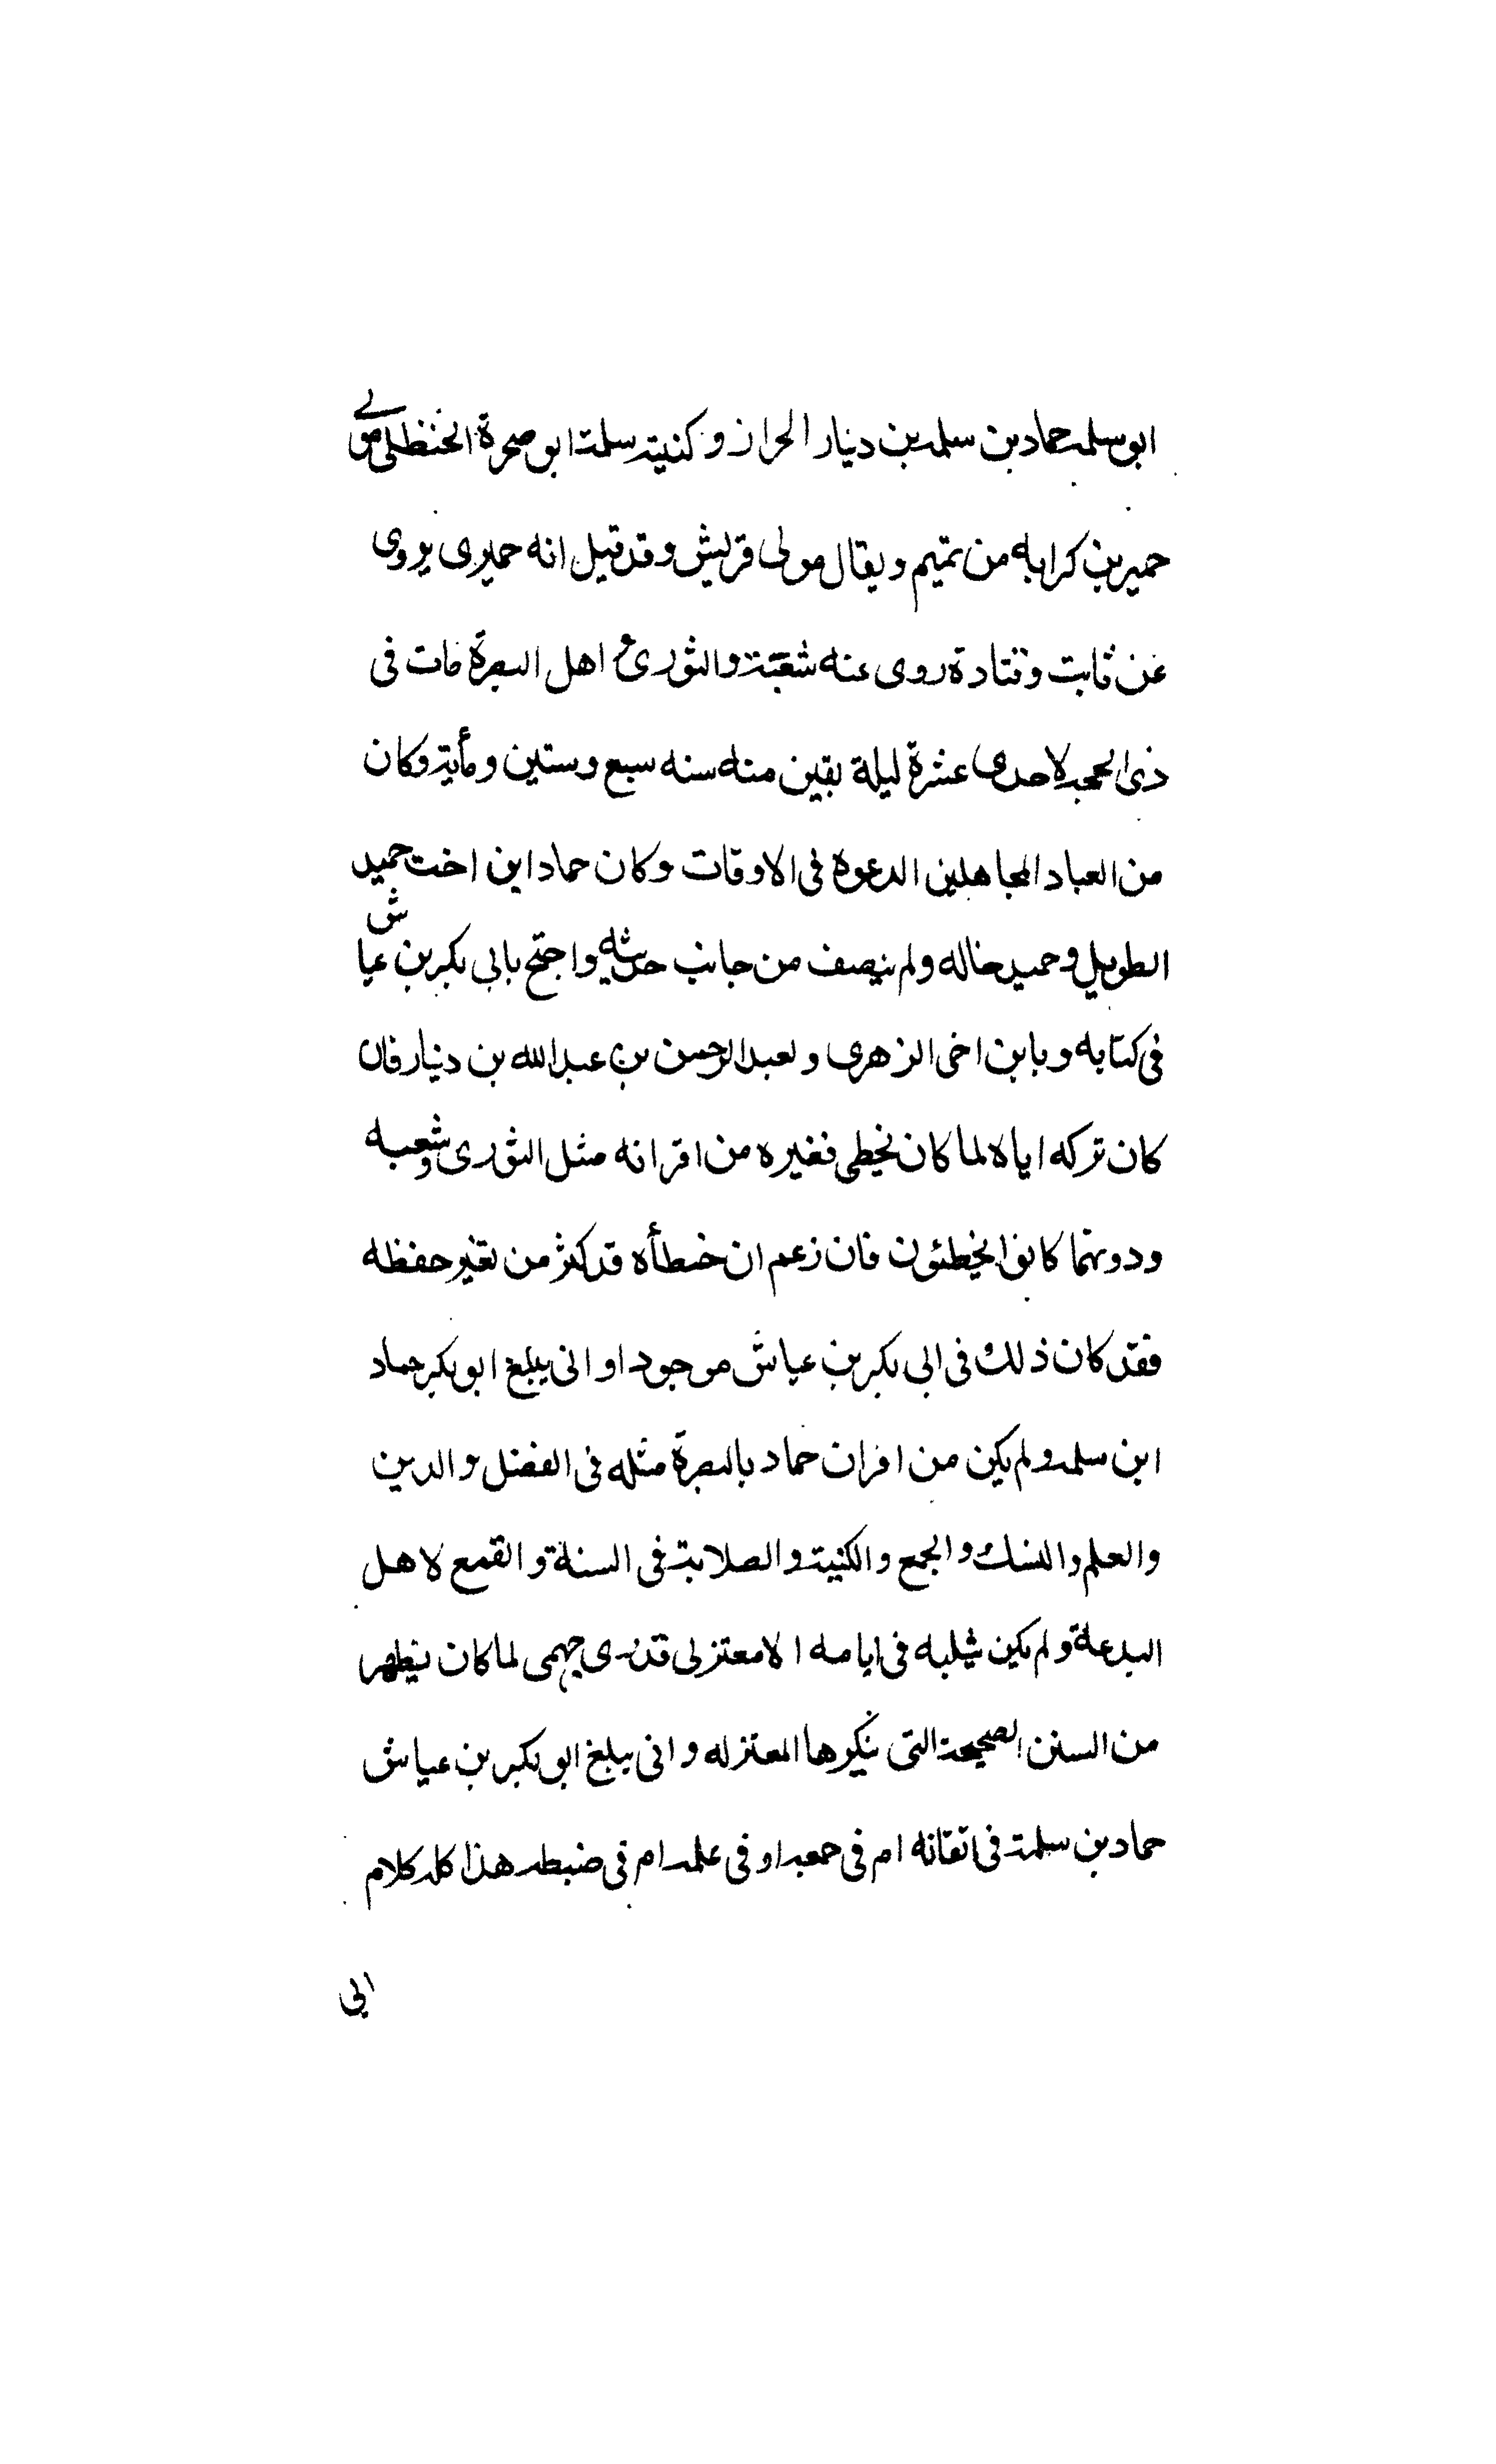 ابو سلمه حماد بن سلمه بن دينار الحراز و كنيته سلمة ابو صحرة الحنظلى مولى
حمير بن كرابه من تميم ويقال مولى قريش وقد قيل انه حميرى يروى
عن ثابت وقتادة روى عنه شعبة والثورى و اهل البصرة مات فى
ذى الحجه لاحدى عشرة ليلة بقين منه سنه سبع وستين ومأية وكان
من العباد المجاهلين الدعوة فى الاوقات وكان حماد ابن اخت حميد
الطويل وحميد خاله ولم ينصف من جانب حديثه واحتج بابى بكر بن عياش
فى كتابه وبابن اخى الزهرى و لعبد الرحمن بن عبد الله بن دينار فان
كان تركه اياه لما كان يخطى فغيره من اقرانه مثل الثورى وشعبه
ودونهما كانوا يخطئون فان زعم ان خطأه قد كثر من تغير حفظه
فقد كان ذلك فى ابى بكر بن عياش موجودا و انى يبلغ ابو بكر حماد
ابن سلمه ولم يكن من اقران حماد بالبصرة مثله فى الفضل والدين
والعلم والنسك والجمع والكتبة والصلابة فى السنة و القمع لاهل
البدعة ولم يكن يثلبه فى ايامه الا معتزلى قدرى جهمى لما كان يظهر
من السنن الصحيحة التى ينكرها المعتزله و انى يبلغ ابو بكر بن عياش
حماد بن سلمة فى اتقانه ام فى جمعه او فى علمه ام فى ضبطه هذا كله كلام
ابى